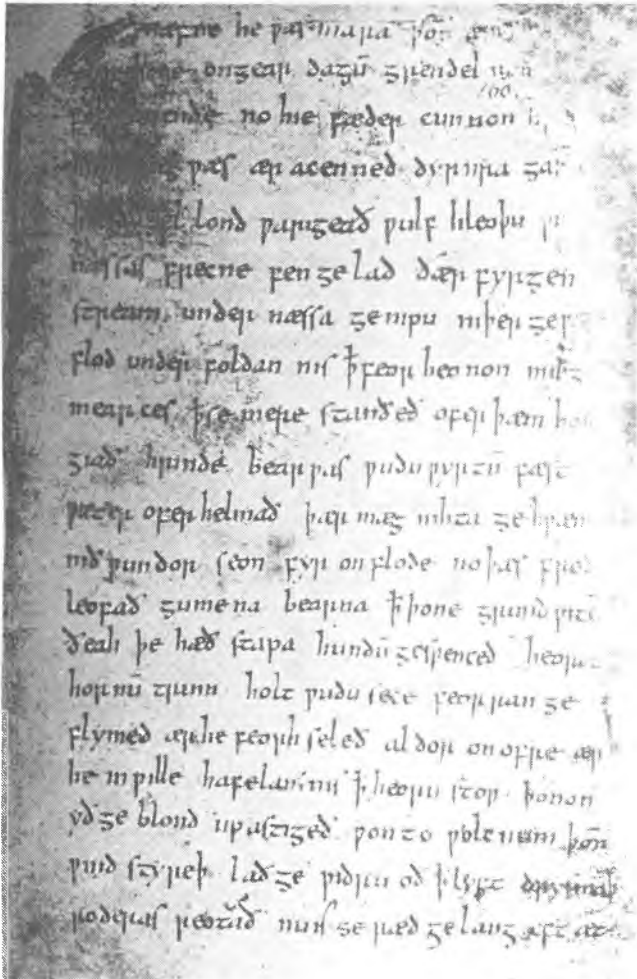 næfne he ƿæs mara þoñ æn
ongear dagū grendel
no hie fæder cunnon
ƿæs ær acenned dyrnra gas
lond ƿarigeað ƿulf hleoþu
næssas frecne fen gelad ðær fyrgen
stream under næssa genipu niþer ge
flod under foldan nis ꝥ feor heonon mil
mearces ꝥ se mere standeð ofer þæm ho
giað hrinde bearƿas ƿudu ƿyrtū fæst
ƿæter ofer helmað þær mæg nihta gehƿæm
nið ƿundor seon fyr on flode no þæs frod
leofað gumena bearna ꝥ þone grund ƿite
ðeah þe hæð stapa hundū gesƿenced heoro
hornū trum holt ƿudu sece feorran ge
flymed ær he feorh seleð aldor on ofre ær
he in ƿille hafelan nis ꝥ heoru stoƿ þonon
yð ge blond up astigeð ƿon to ƿolcnum þoñ
ƿind styreþ lað ge ƿidru oð ꝥ lyft drysmaþ
roderas reotað nu is se ræd gelang eft æt